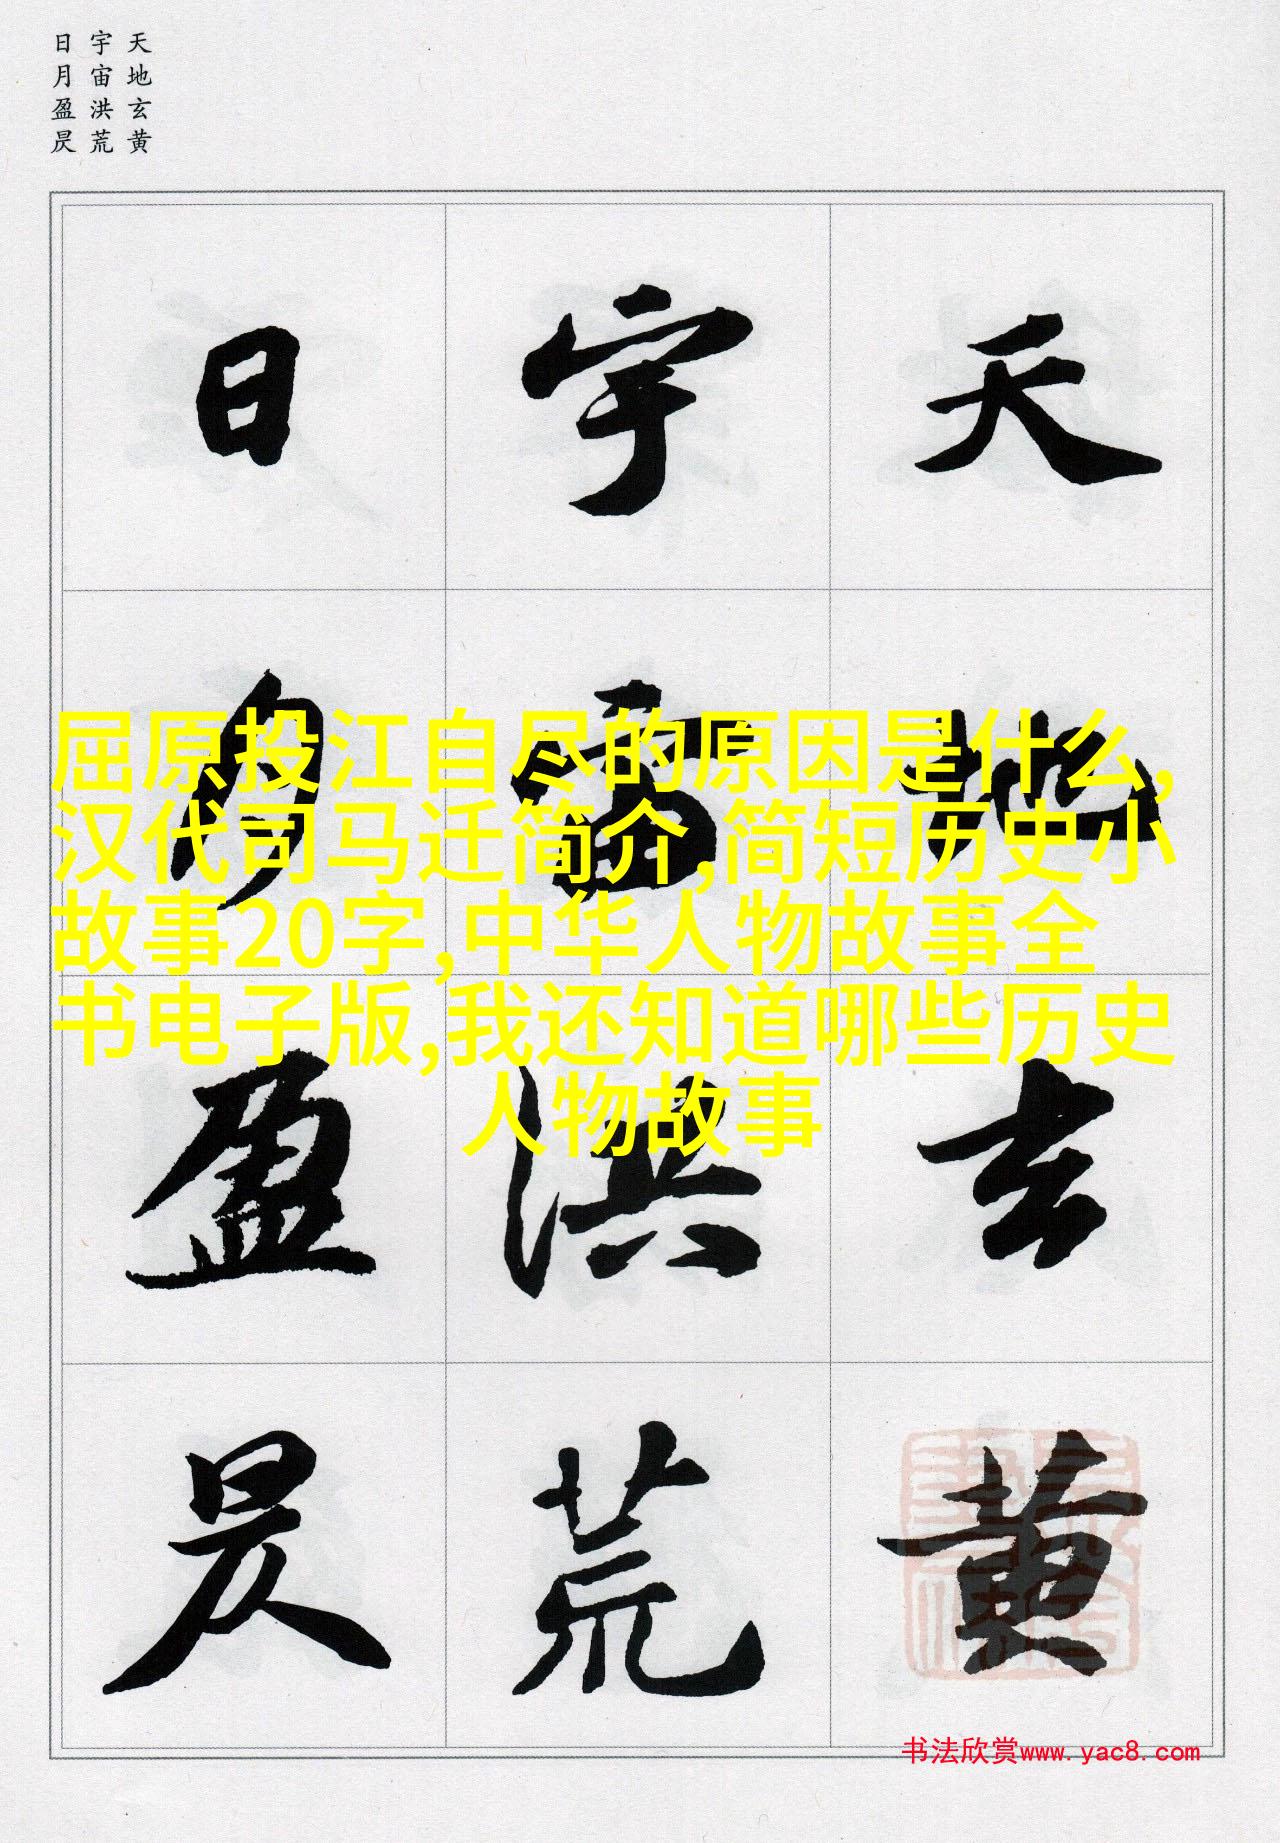 天地玄黄
宇宙洪荒
日月盈昃
天地玄黄
宇宙洪荒
日月盈昃
屈原投江自尽的原因是什么,
汉代司马迁简介,简短历史小
故事20字,中华人物故事全
书电子版,我还知道哪些历史
人物故事
书法欣赏www.yac8.com